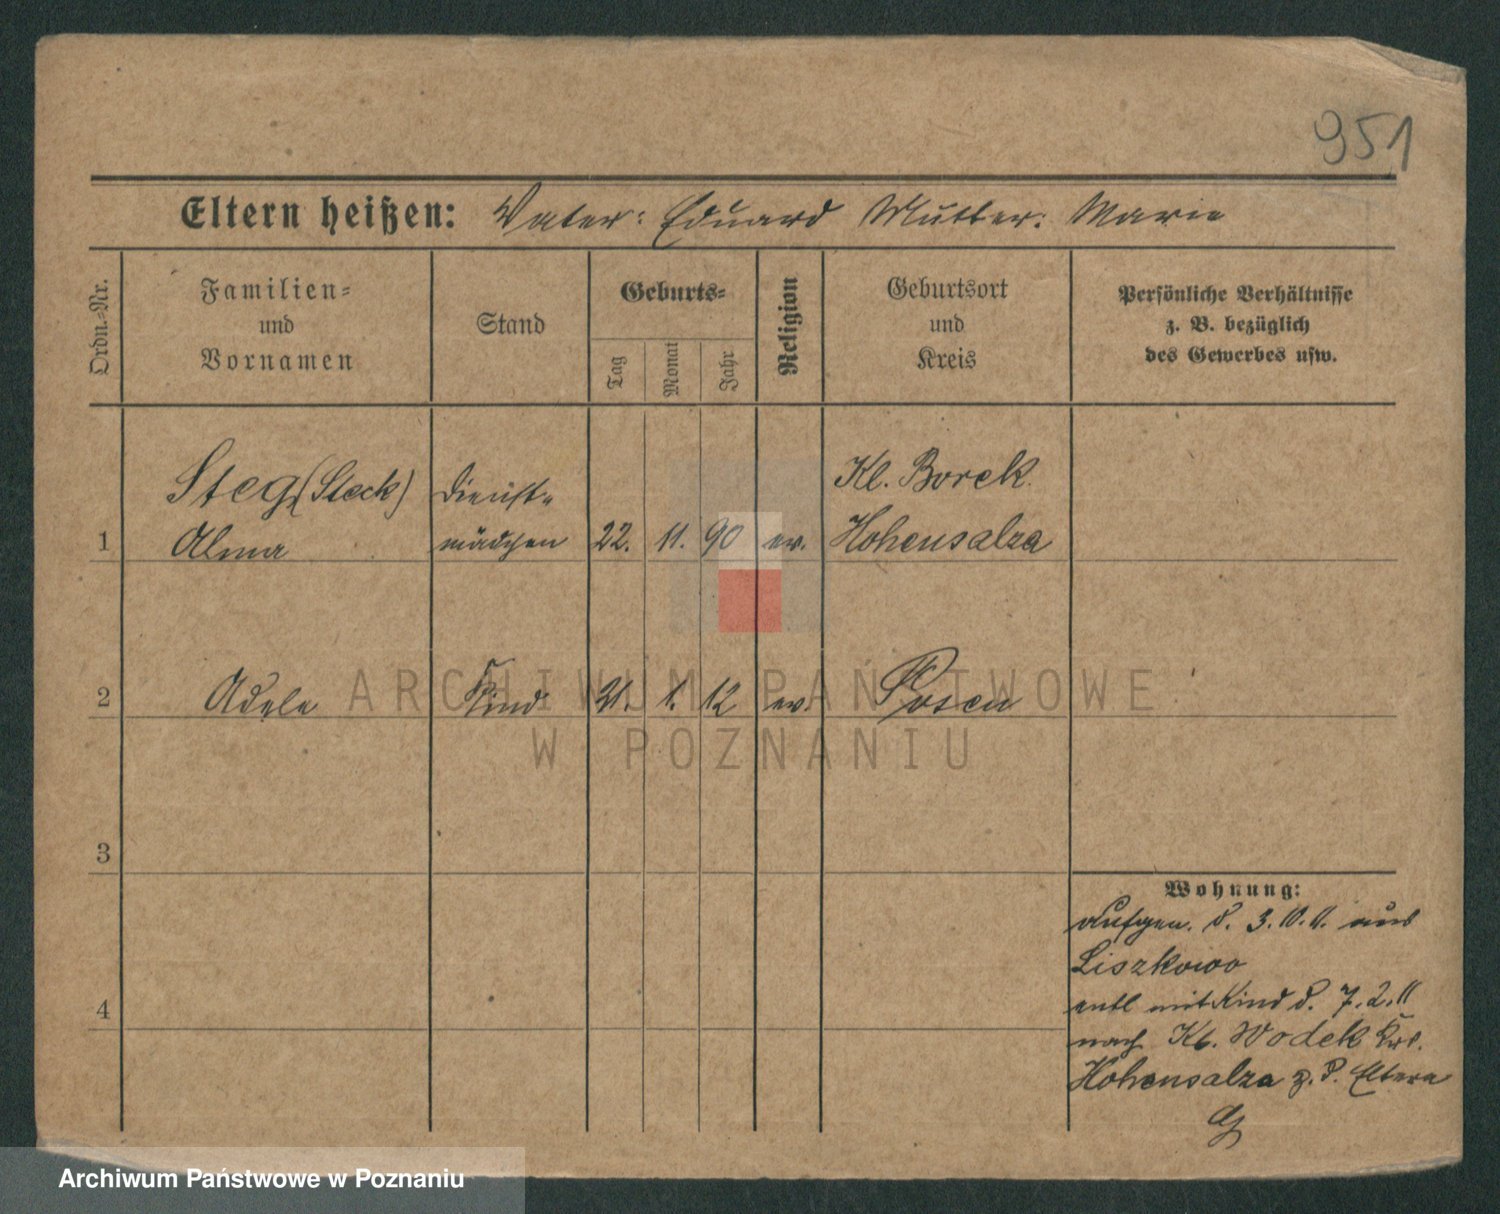 951
Eltern heißen: Vater: Eduard Mutter: Marie
Ordn.-Nr.
Familien-
und
Vornamen
Stand
Geburts-
Tag
Monat
Jahr
Religion
Geburtsort
und
Kreis
Persönliche Verhältnisse
z. B. bezüglich
des Gewerbes usw.
Steg (Steck) Dienst- Kl. Borek.
1 Alma mädchen 22. 11. 90 ev. Hohensalza
2 Adele Kind 21. 1. 12 ev. Posen
ARCHIWUM PAŃSTWOWE
W POZNANIU
3
Wohnung:
Aufgen. d. 3.10.11. aus
Liszkowo
4
entl mit Kind d. 7.2.11
nach Kl. Wodek Krs.
Hohensalza z. d. Eltern
Archiwum Państwowe w Poznaniu